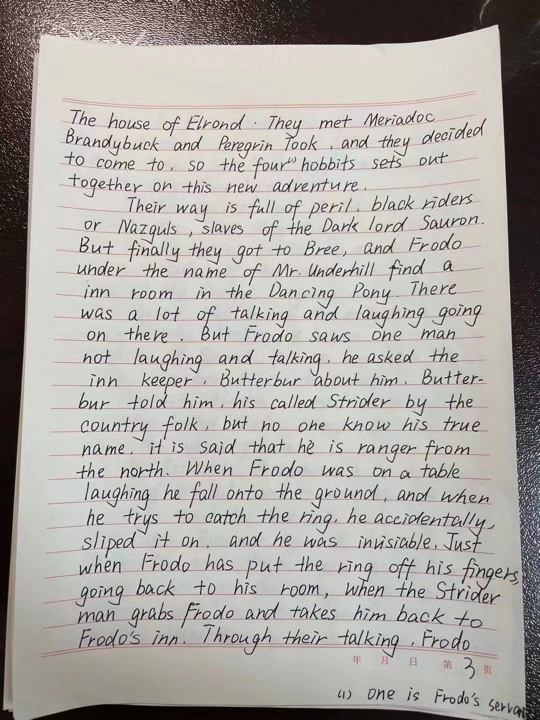 The house of Elrond. They met Meriadoc
Brandybuck and Peregrin Took, and they decided
to come to, so the four⁽¹⁾ hobbits sets out
together on this new adventure.
Their way is full of peril, black riders
or Nazguls, slaves of the Dark lord Sauron.
But finally they got to Bree, and Frodo
under the name of Mr. Underhill find a
inn room in the Dancing Pony. There
was a lot of talking and laughing going
on there. But Frodo saws one man
not laughing and talking, he asked the
inn keeper, Butterbur about him. Butter-
bur told him, his called Strider by the
country folk, but no one know his true
name, it is said that he is ranger from
the north. When Frodo was on a table
laughing he fall onto the ground, and when
he trys to catch the ring, he accidentally,
sliped it on, and he was invisiable. Just
when Frodo has put the ring off his fingers,
going back to his room, when the Strider
man grabs Frodo and takes him back to
Frodo's inn. Through their talking, Frodo
年 月 日 第 3 页
(1) One is Frodo's servan